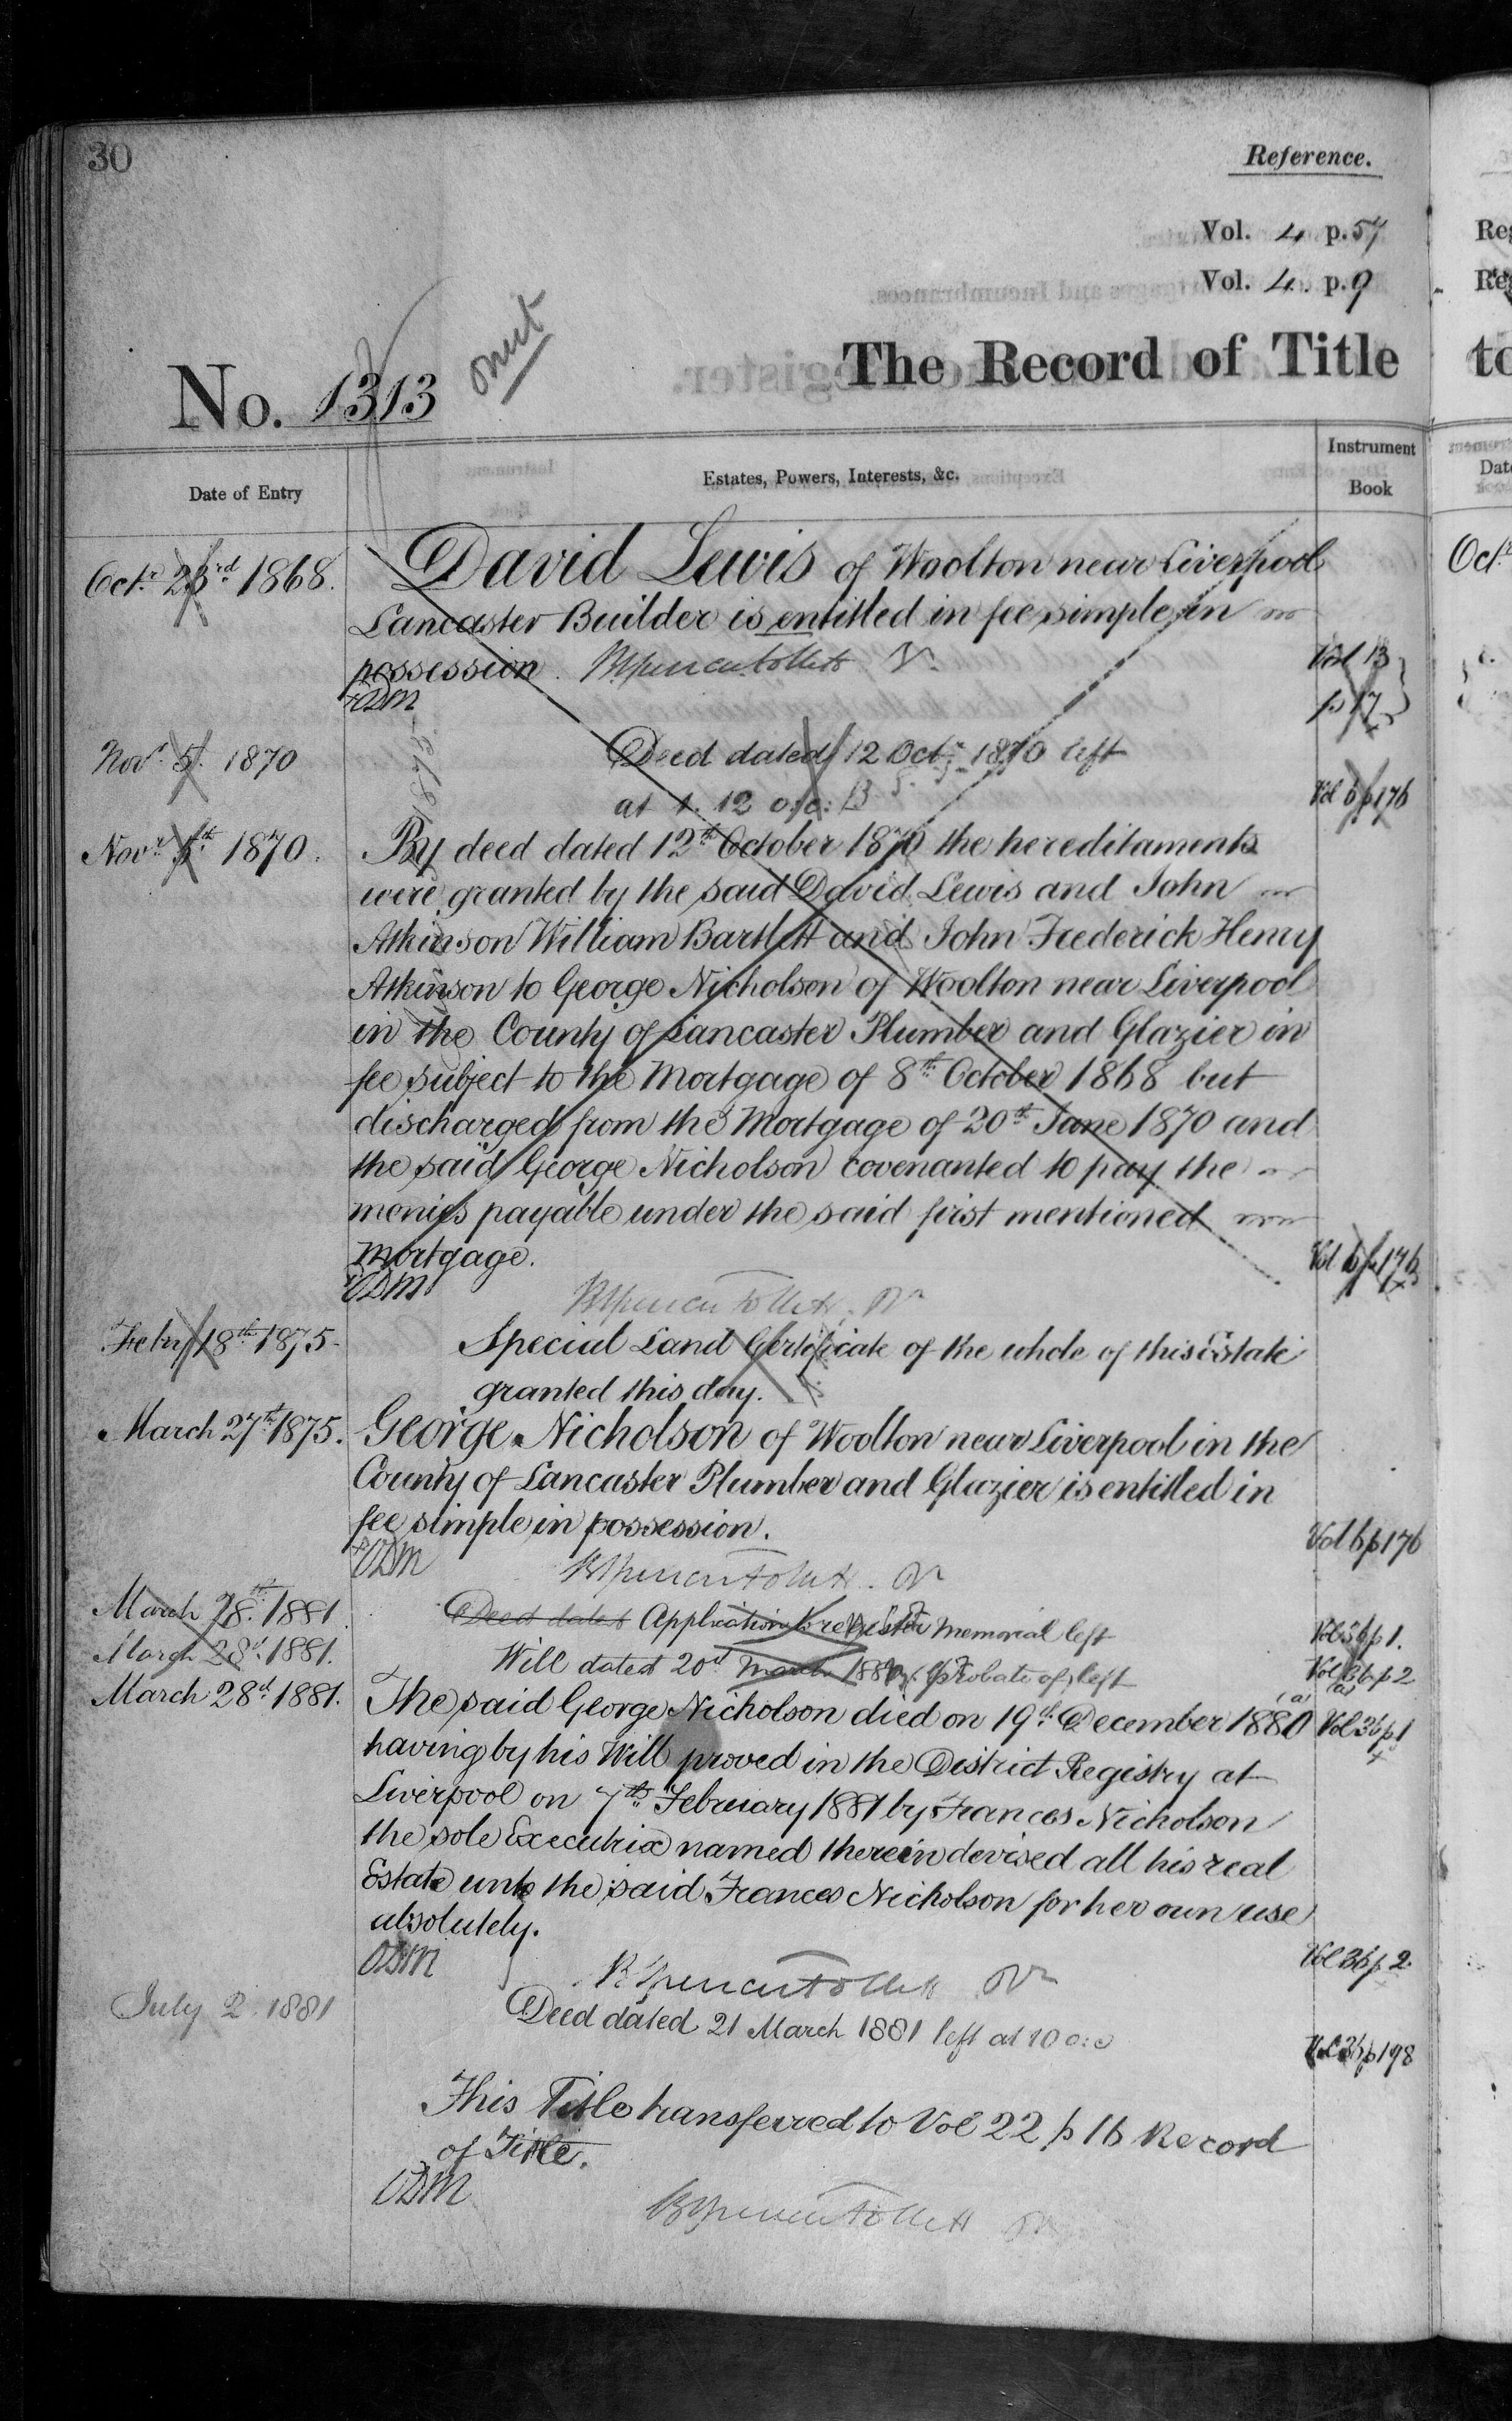 30
Reference.
Vol. 4 p. 57
Vol. 4. p. 9
The Record of Title
No. 1313
omit
Date of Entry
Estates, Powers, Interests, &c.
Instrument
Book
Octr. 23rd 1868.
David Lewis of Woolton near Liverpool
Lancaster Builder is entitled in fee simple in
possession.
Vol 13
p 17
Novr. 5. 1870
Deed dated 12 Octr. 1870 left
at 1. 12 o:c:
Vol 6 p 176
Novr. 5th 1870.
By deed dated 12th October 1870 the hereditaments
were granted by the said David Lewis and John
Atkinson William Bartlett and John Frederick Henry
Atkinson to George Nicholson of Woolton near Liverpool
in the County of Lancaster Plumber and Glazier in
fee subject to the Mortgage of 8th October 1868 but
discharged from the Mortgage of 20th June 1870 and
the said George Nicholson covenanted to pay the
monies payable under the said first mentioned
Mortgage.
Vol 6 p 176
ODM
Feby 18th 1875.
Special Land Certificate of the whole of this Estate
granted this day.
March 27th 1875.
George Nicholson of Woolton near Liverpool in the
County of Lancaster Plumber and Glazier is entitled in
fee simple in possession.
Vol 6 p 176
ODM
March 28th 1881
Deed dated Application to register Memorial left
Vol 36 p 1.
March 28th 1881.
Will dated 20th left
Vol 36 p 2
March 28th 1881.
The said George Nicholson died on 19th December 1880 (a)
(a) Vol 36 p 1
having by his Will proved in the District Registry at
Liverpool on 7th February 1881 by Frances Nicholson
the sole Executrix named therein devised all his real
Estate unto the said Frances Nicholson for her own use
absolutely.
Vol 36 p 2.
ODM
July 2. 1881
Deed dated 21 March 1881 left at 10 o:c
Vol 36 p 198
This Title transferred to Vol 22 p 16 Record
of Title.
ODM